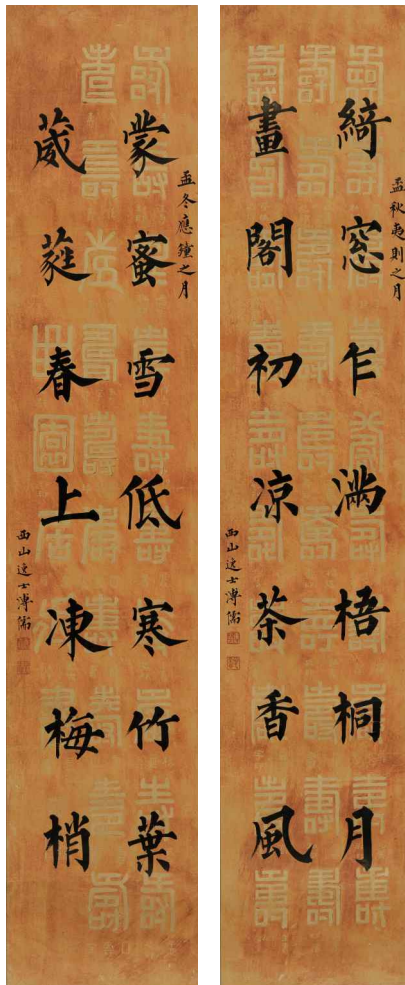 孟秋夷則之月
綺窓乍滿梧桐月
畫閣初凉茶香風
西山逸士溥儒
孟冬應鐘之月
蒙蜜雪低寒竹葉
葳蕤春上凍梅梢
西山逸士溥儒